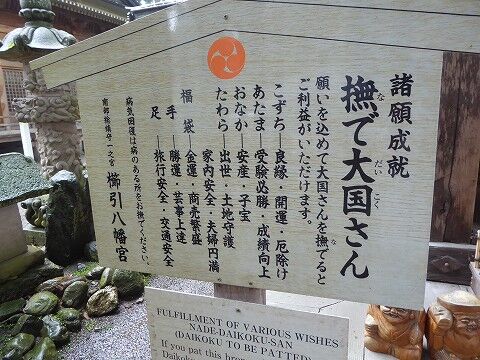 諸願成就
撫で大国さん
な だいこく
願いを込めて大国さんを撫でると
ご利益がいただけます。
こずち──良縁・開運・厄除け
あたま──受験必勝・成績向上
おなか──安産・子宝
たわら──出世・土地守護
家内安全・夫婦円満
福袋──金運・商売繁盛
手──勝運・芸事上達
足──旅行安全・交通安全
病気回復は病のある所をお撫でください。
南部総鎮守一之宮 櫛引八幡宮
FULFILLMENT OF VARIOUS WISHES
NADE-DAIKOKU-SAN
(DAIKOKU TO BE PATTED)
If you pat this
Daikoku